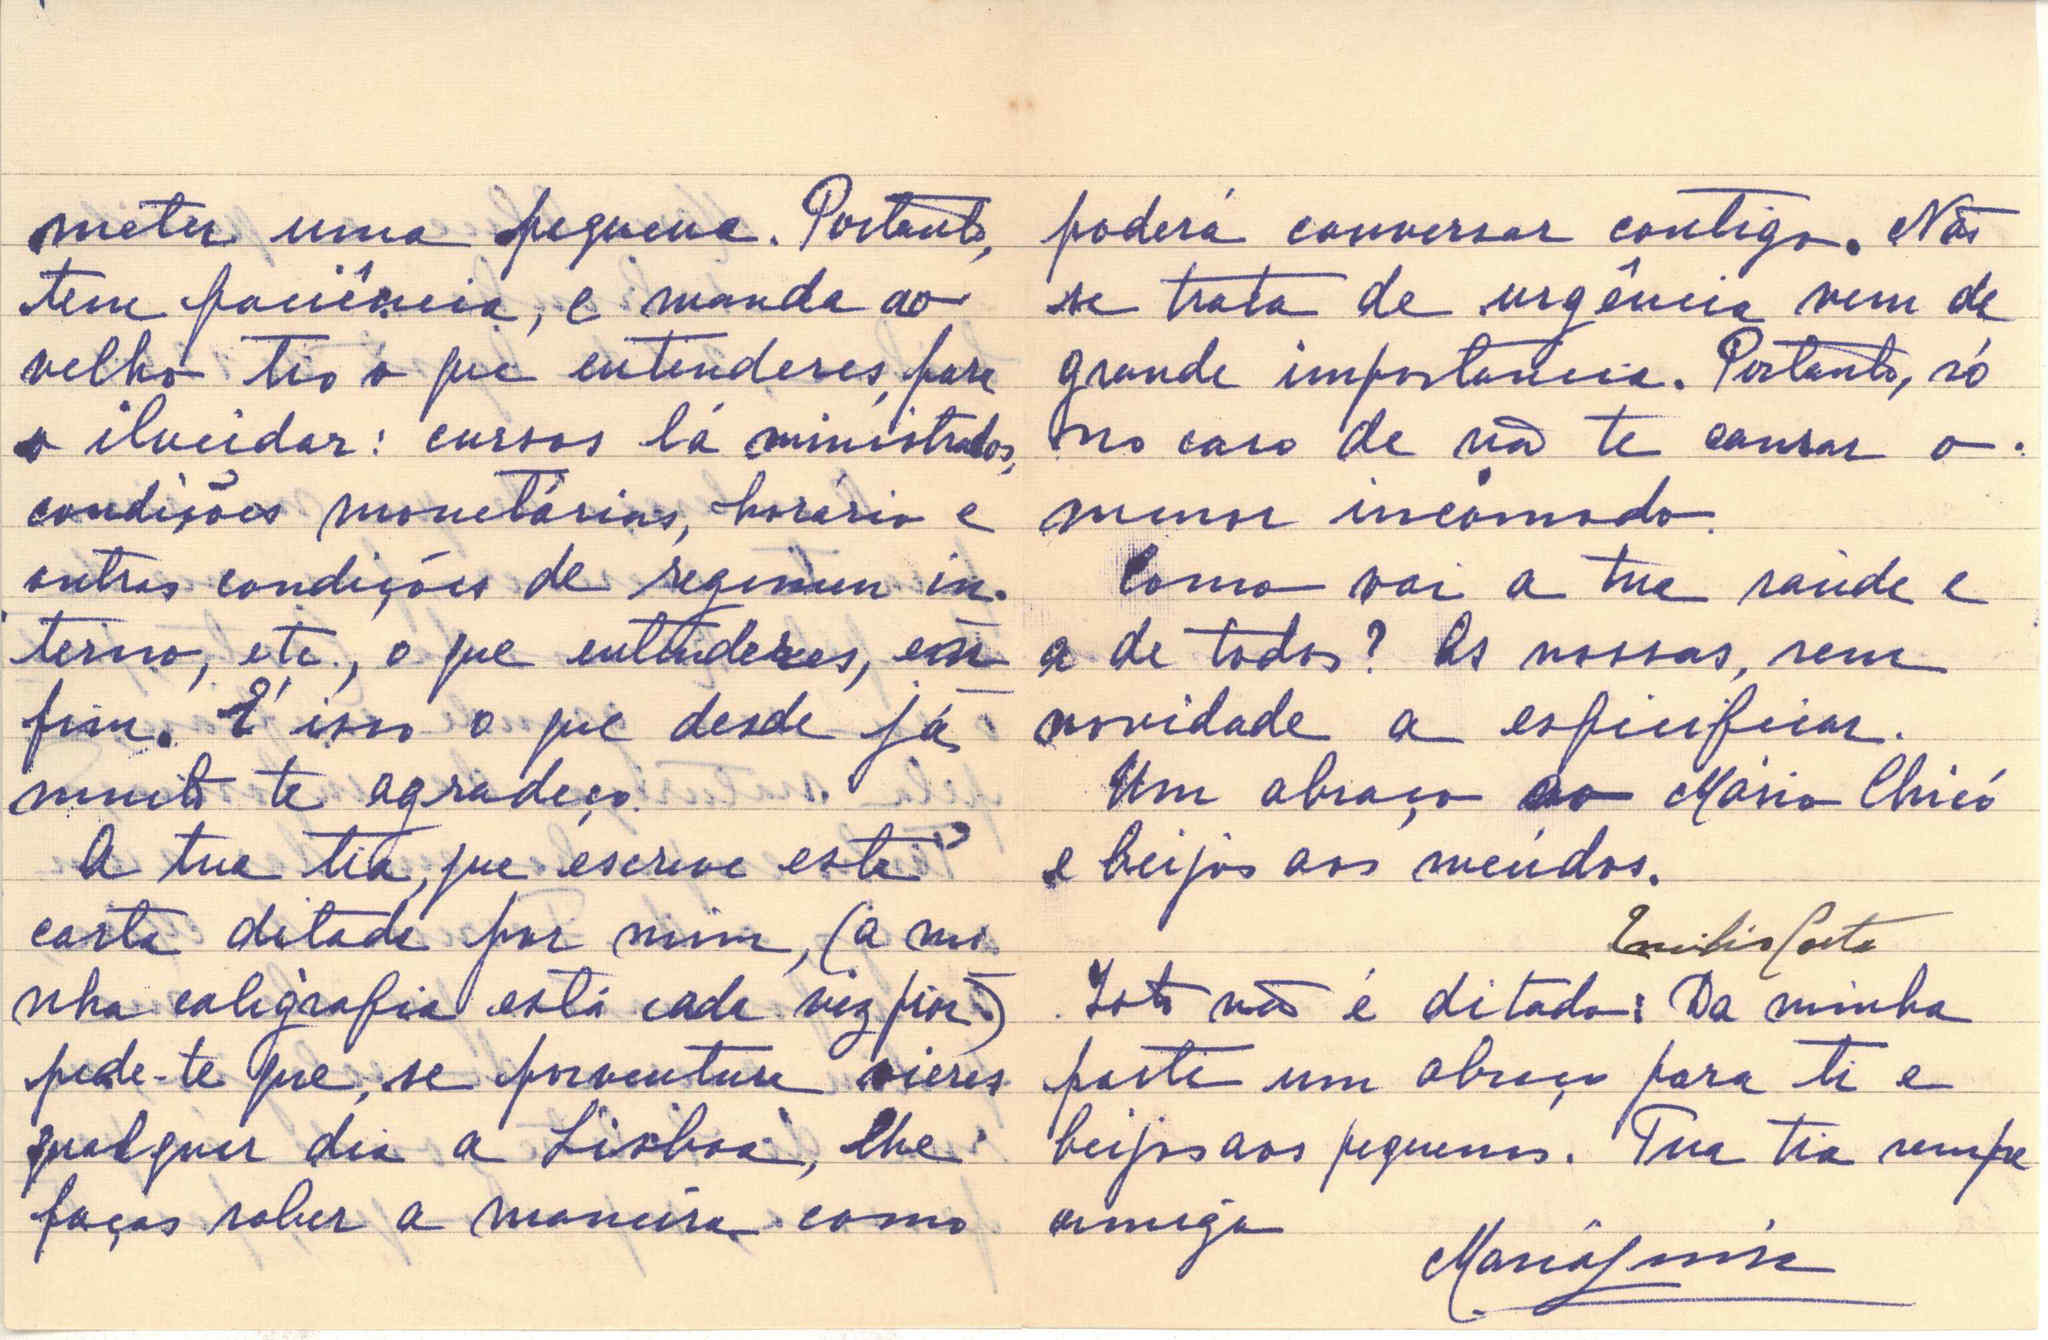 meter uma pequena. Portanto,
tem paciência, e manda ao
velho tio o que entenderes, para
o ilucidar: cursos lá ministrados,
condições monetárias, horário e
outras condições de regimen in-
terno, etc., o que entenderes, em
fim. É isso o que desde já
muito te agradeço.
A tua tia, que escreve esta
carta ditada por mim, (a mi
nha caligrafia está cada vez pior.)
pede-te que, se porventura vieres
qualquer dia a Lisboa, lhe
faças saber a maneira como
poderá conversar contigo. Não
se trata de urgência nem de
grande importancia. Portanto, só
no caso de não te causar o
menor incómodo.
Como vai a tua saúde e
a de todos? As nossas, sem
novidade a espicificar.
Um abraço ao Mário Chicó
e beijos aos meúdos.
Emilio Costa
Isto não é ditado: Da minha
parte um abraço para ti e
beijos aos pequenos. Tua tia sempre
amiga
Maria Luisa